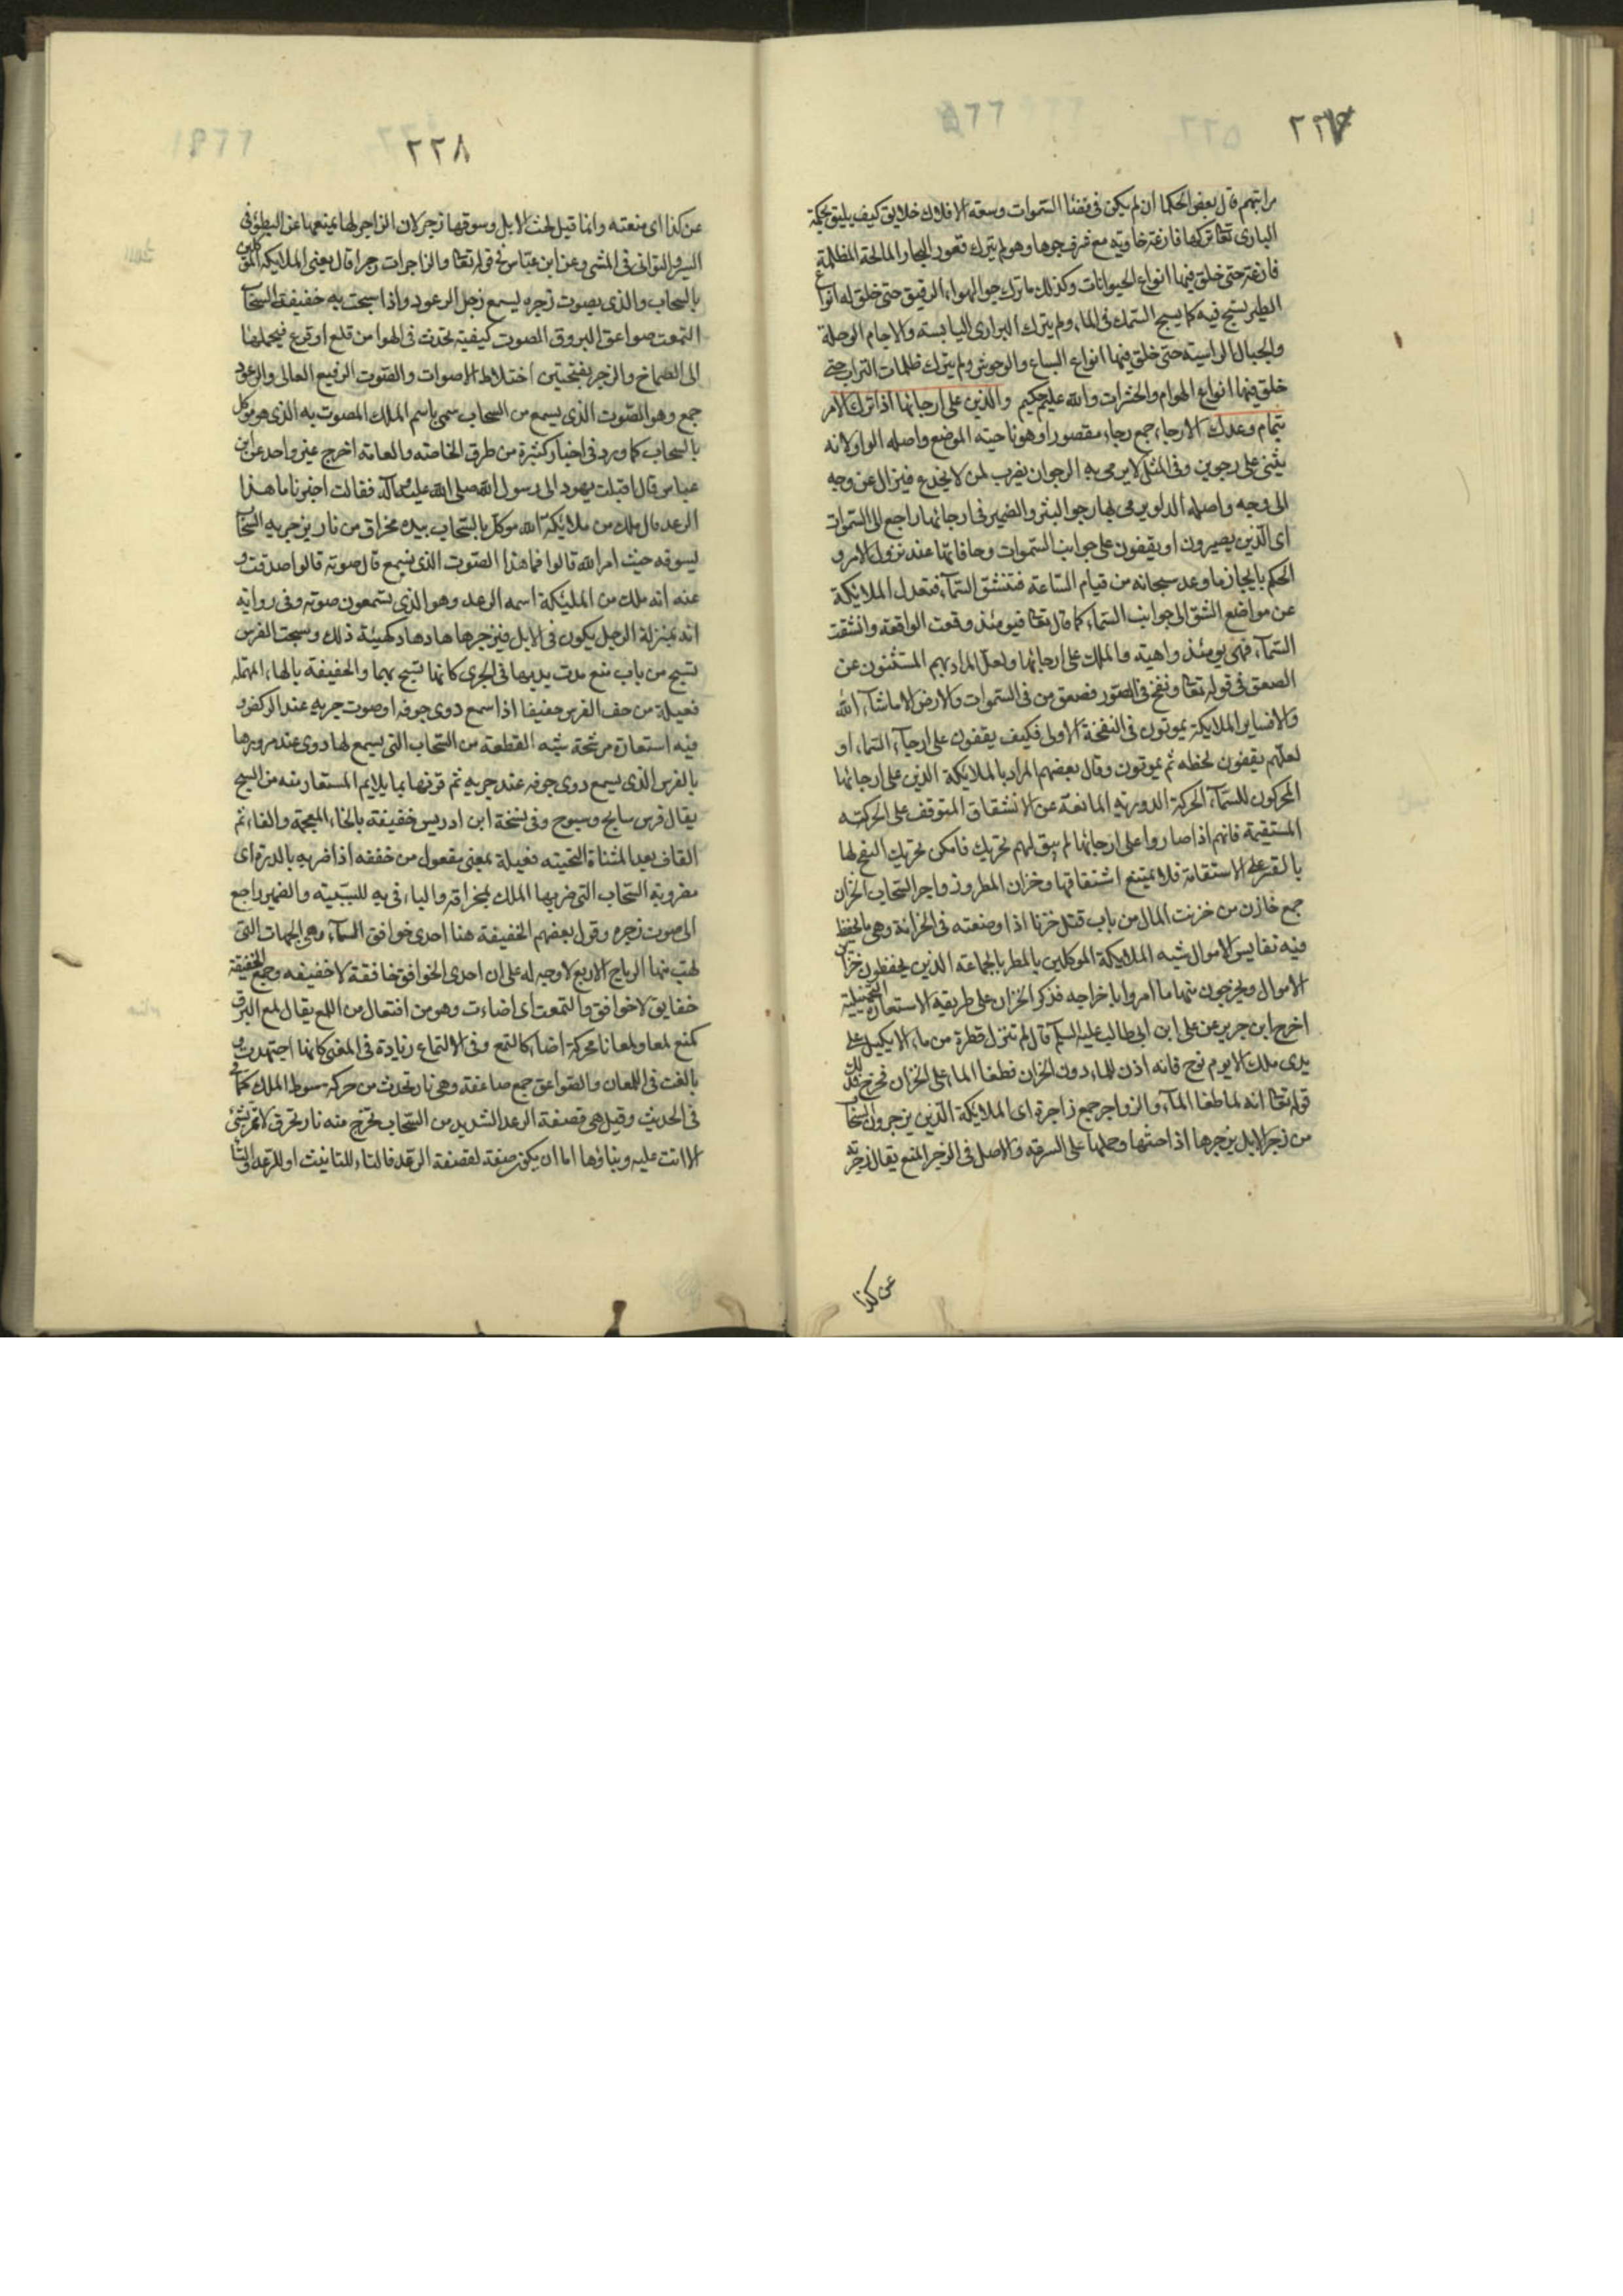 ٢٢٧
مراتبهم قال بعض الحكما ان لم يكن فى فضا السموات وسعه الافلاك خلايق كيف يليق بحكمة
البارى تعا تركها فارغة خاوية مع شرف جوهرها وهو لم يترك قعور البحار المالحة المظلمة
فارغة حتى خلق فيها انواع الحيوانات وكذلك ما ترك جو الهواء الرقيق حتى خلق له انواع
الطير يسبح فيه كما يسبح السمك فى الماء ولم يترك البرارى اليابسه والاجام الوحلة
والجبال الراسية حتى خلق فيها انواع السباع والوحوش ولم يترك ظلمات التراب حتى
خلق فيها انواع الهوام والحشرات والله عليم حكيم والذين على ارجائها اذا ترك الامر
بتمام وعدك الارجاء جمع رجاء مقصورا وهو ناحيته الموضع واصله الواو لانه
يثنى على رجوين وفى المثل لا يرمى به الرجوان يضرب لمن لا يخدع فيزال عن وجه
الى وجه واصله الدلو يرمى بها رجوا البئر والضمير فى ارجائها راجع الى السموات
اى الذين يصيرون او يقفون على جوانب السموات وحافاتها عند نزول الامر و
الحكم بايجاز ما وعد سبحانه من قيام الساعة فتنشق السمآء فتعدل الملائكة
عن مواضع الشق الى جوانب السماء كما قال تعا فيومئذ وقعت الواقعة وانشقت
السمآء فهى يومئذ واهية والملك على ارجائها ولعل المراد بهم المستثنون عن
الصعق فى قوله تعا ونفخ فى الصور فصعق من فى السموات والارض الا ما شآء الله
والا فساير الملائكة يموتون فى النفخة الاولى فكيف يقفون على ارجآء السماء او
لعلهم يقفون لحظه ثم يموتون وقال بعضهم المراد بالملائكة الذين على ارجائها
المحركون للسمآء الحركة الدورية المانعة عن الانشقاق المتوقف على الحركته
المستقيمة فانهم اذا صاروا على ارجائها لم يبق لهم تحريك فامكن تحريك النفخ لها
بالقسر على الاستقامة فلا يمتنع انشقاقها وخزان المطر وزواجر السحاب الخزان
جمع خازن من خزنت المال من باب قتل خزنا اذا وضعته فى الخزانة وهى ما يحفظ
فيه نفايس الاموال شبه الملائكة الموكلين بالمطر بالجماعة الذين يحفظون خزاين
الاموال ويخرجون منها ما امروا باخراجه فذكر الخزان على طريقة الاستعارة التخييلية
اخرج ابن جرير عن على ابن ابى طالب عليه السلم قال لم تنزل قطرة من ماء الا بكيل على
يدى ملك الا يوم نوح فانه اذن للماء دون الخزان فطغا الماء على الخزان فخرج فذلك
قوله تعا انه لما طغا المآء والزواجر جمع زاجرة اى الملائكة الذين يزجرون السحاب
من زجر الابل يزجرها اذا حثها وحملها على السرعة والاصل فى الزجر المنع يقال زجرته
عن كذا
٢٢٨
عن كذا اى منعته وانما قيل لحث الابل وسوقها زجر لان الزاجر لها يمنعها عن البطؤ فى
السير والتوانى فى المشى وعن ابن عباس فى قوله تعا والزاجرات زجرا قال يعنى الملائكة الموكلين
بالسحاب والذى بصوت زجره يسمع زجل الرعود واذا سبحت به حفيفة السحاب
التمعت صواعق البروق الصوت كيفية تحدث فى الهوا من قلع او قرع فيحملها
الى الصماخ والزجل بفتحتين اختلاط الاصوات والصوت الرفيع العالى والرعود
جمع وهو الصوت الذى يسمع من السحاب سمى باسم الملك المصوت به الذى هو موكل
بالسحاب كما ورد فى اخبار كثيرة من طرق الخاصته والعامة اخرج غير واحد عن ابن
عباس قال اقبلت يهود الى رسول الله صلى الله عليه وآله فقالت اخبرنا ما هذا
الرعد قال ملك من ملائكة الله موكل بالسحاب بيده مخراق من نار يزجر به السحاب
يسوقه حيث امر الله قالوا فما هذا الصوت الذى نسمع قال صوته قالوا صدقت و
عنه انه ملك من المليكة اسمه الرعد وهو الذى تسمعون صوته وفى رواية
انه بمنزلة الرجل يكون فى الابل فيزجرها هادهاد كهيئة ذلك وسبحت الفرس
تسبح من باب منع مدت يديها فى الجرى كانها تسبح بهما والحفيفة بالهاء المهمله
فعيلة من حف الفرس حفيفا اذا سمع دوى جوفه او صوت جريه عند الركض و
فيه استعارة مرشحة شبه القطعة من السحاب التى يسمع لها دوى عند مرورها
بالفرس الذى يسمع دوى جوفه عند جريه ثم قرنها بما يلايم المستعار منه من السبح
يقال فرس سابح وسبوح وفى نسخة ابن ادريس خفيقة بالخاء المعجمة والفاء ثم
القاف بعد المثناة التحتية فعيلة بمعنى مفعول من خفقه اذا ضربه بالدرة اى
مضروبة السحاب التى ضربها الملك بمخراقه والباء فى به للسببية والضمير راجع
الى صوت زجره وقول بعضهم الخفيقة هنا احدى خوافق السمآء وهى الجهات التى
تهب منها الرياح الاربع لا وجه له على ان احدى الخوافق خافقة لا خفيقه وجمع الخفيقة
خفايق لا خوافق والتمعت اى اضاءت وهو من افتعال من اللمع يقال لمع البرق
كمنع لمعا ولمعانا محركة اضاء كالتمع وفى الالتماع زيادة فى المعنى كانها اجتهدت و
بالغت فى اللمعان والصواعق جمع صاعقة وهى نار تحدث من حركة سوط الملك كما
فى الحديث وقيل هى قصفة الرعد الشديد من السحاب تخرج منه نار تحرق لا تمر بشئ
الا اتت عليه وبناؤها اما ان يكون صفة لقصفة الرعد فالتاء للتانيث او للرعد فالتاء